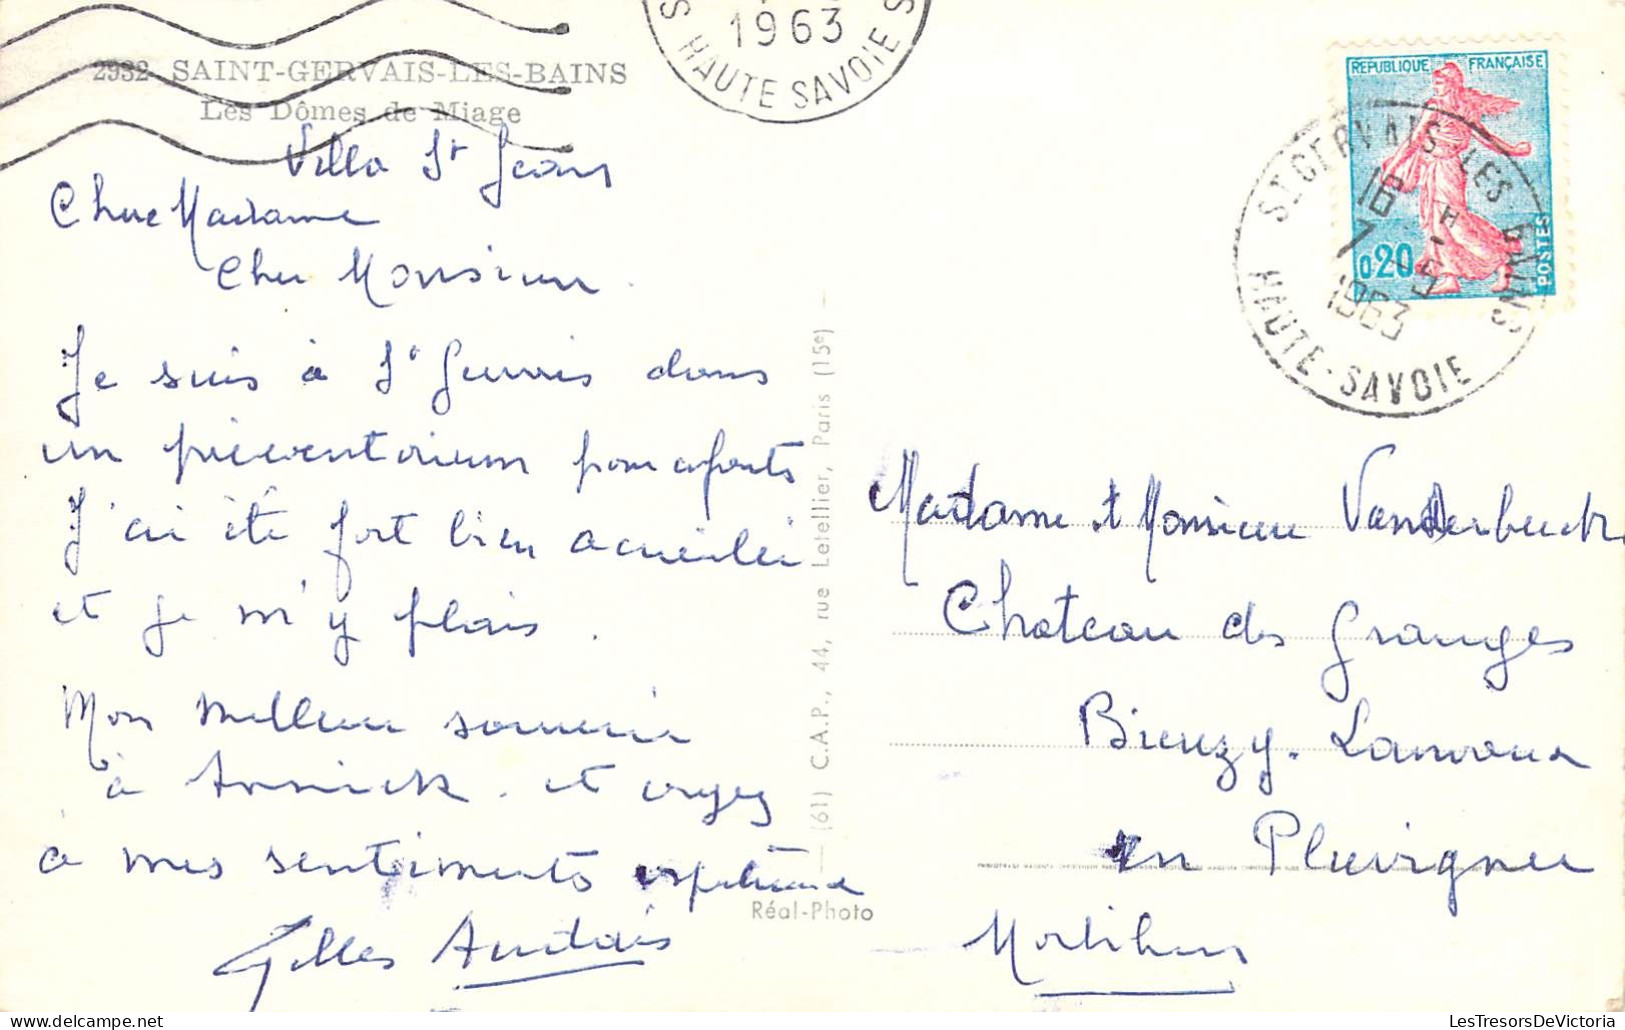 2932 SAINT-GERVAIS-LES-BAINS
Les Dômes de Miage
1963
S HAUTE SAVOIE S
Villa St Jean
Chère Madame
Cher Monsieur.
Je suis à St Gervais dans
un préventorium pour enfants
J'ai été fort bien accueilli
et je m'y plais.
Mon meilleur souvenir
à Annick. et croyez
à mes sentiments respectueux
Gilles
(61) C.A.P., 44, rue Letellier, Paris (15e)
Réal-Photo
REPUBLIQUE FRANÇAISE
0,20
POSTES
ST GERVAIS-LES-BAINS
18 H
7 - 5
1963
HAUTE-SAVOIE
Madame et Monsieur
Chateau des Granges
Bieuzy. Lanvaux
en Pluvigner
Morbihan
LesTresorsDeVictoria.com
LesTresorsDeVictoria